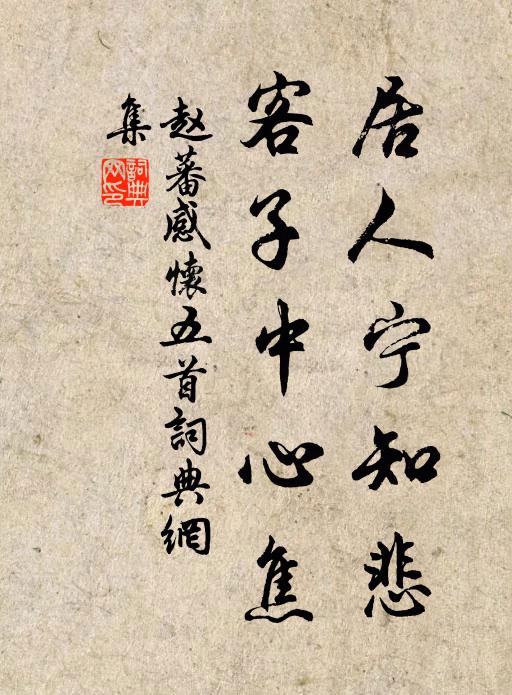 居人宁知悲
客子中心焦
赵蕃感懷五首詞典網
集
詞典
网印